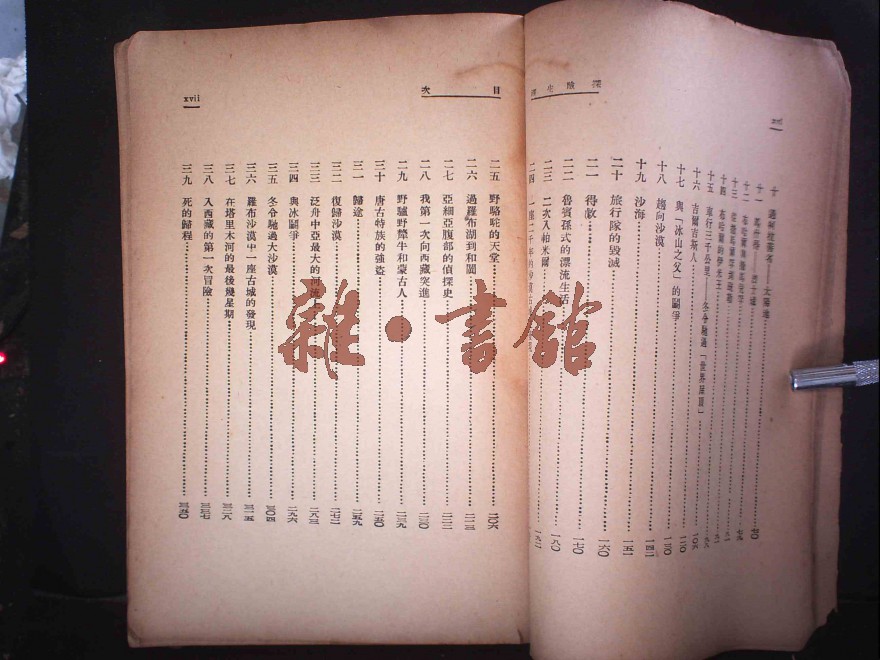 探險生涯
十
十一
十二
十三
十四
十五 車行三千公里——冬令馳過「世界屋頂」 九八
十六 吉爾吉斯人 一〇六
十七 與「冰山之父」的鬪爭 一二〇
十八 趨向沙漠 一三〇
十九 沙海 一四二
二十 旅行隊的毀滅 一五一
二一 得救 一六〇
二二 魯賓孫式的漂流生活 一七〇
二三 二次入帕米爾 一八〇
二四 一座二千年的沙漠古 一九二
目次
xvii
二五 野駱駝的天堂 二〇六
二六 過羅布湖到和闐 二一三
二七 亞細亞腹部的偵探史 二二二
二八 我第一次向西藏突進 二三〇
二九 野驢野犛牛和蒙古人 二三九
三十 唐古特族的強盜 二五〇
三一 歸途 二五九
三二 復歸沙漠 二七二
三三 泛舟中亞最大的河流 二八三
三四 與冰鬪爭 二九六
三五 冬令馳過大沙漠 三〇四
三六 羅布沙漠中一座古城的發現 三一五
三七 在塔里木河的最後幾星期 三二八
三八 入西藏的第一次冒險 三三七
三九 死的歸程 三五〇
雜·書館